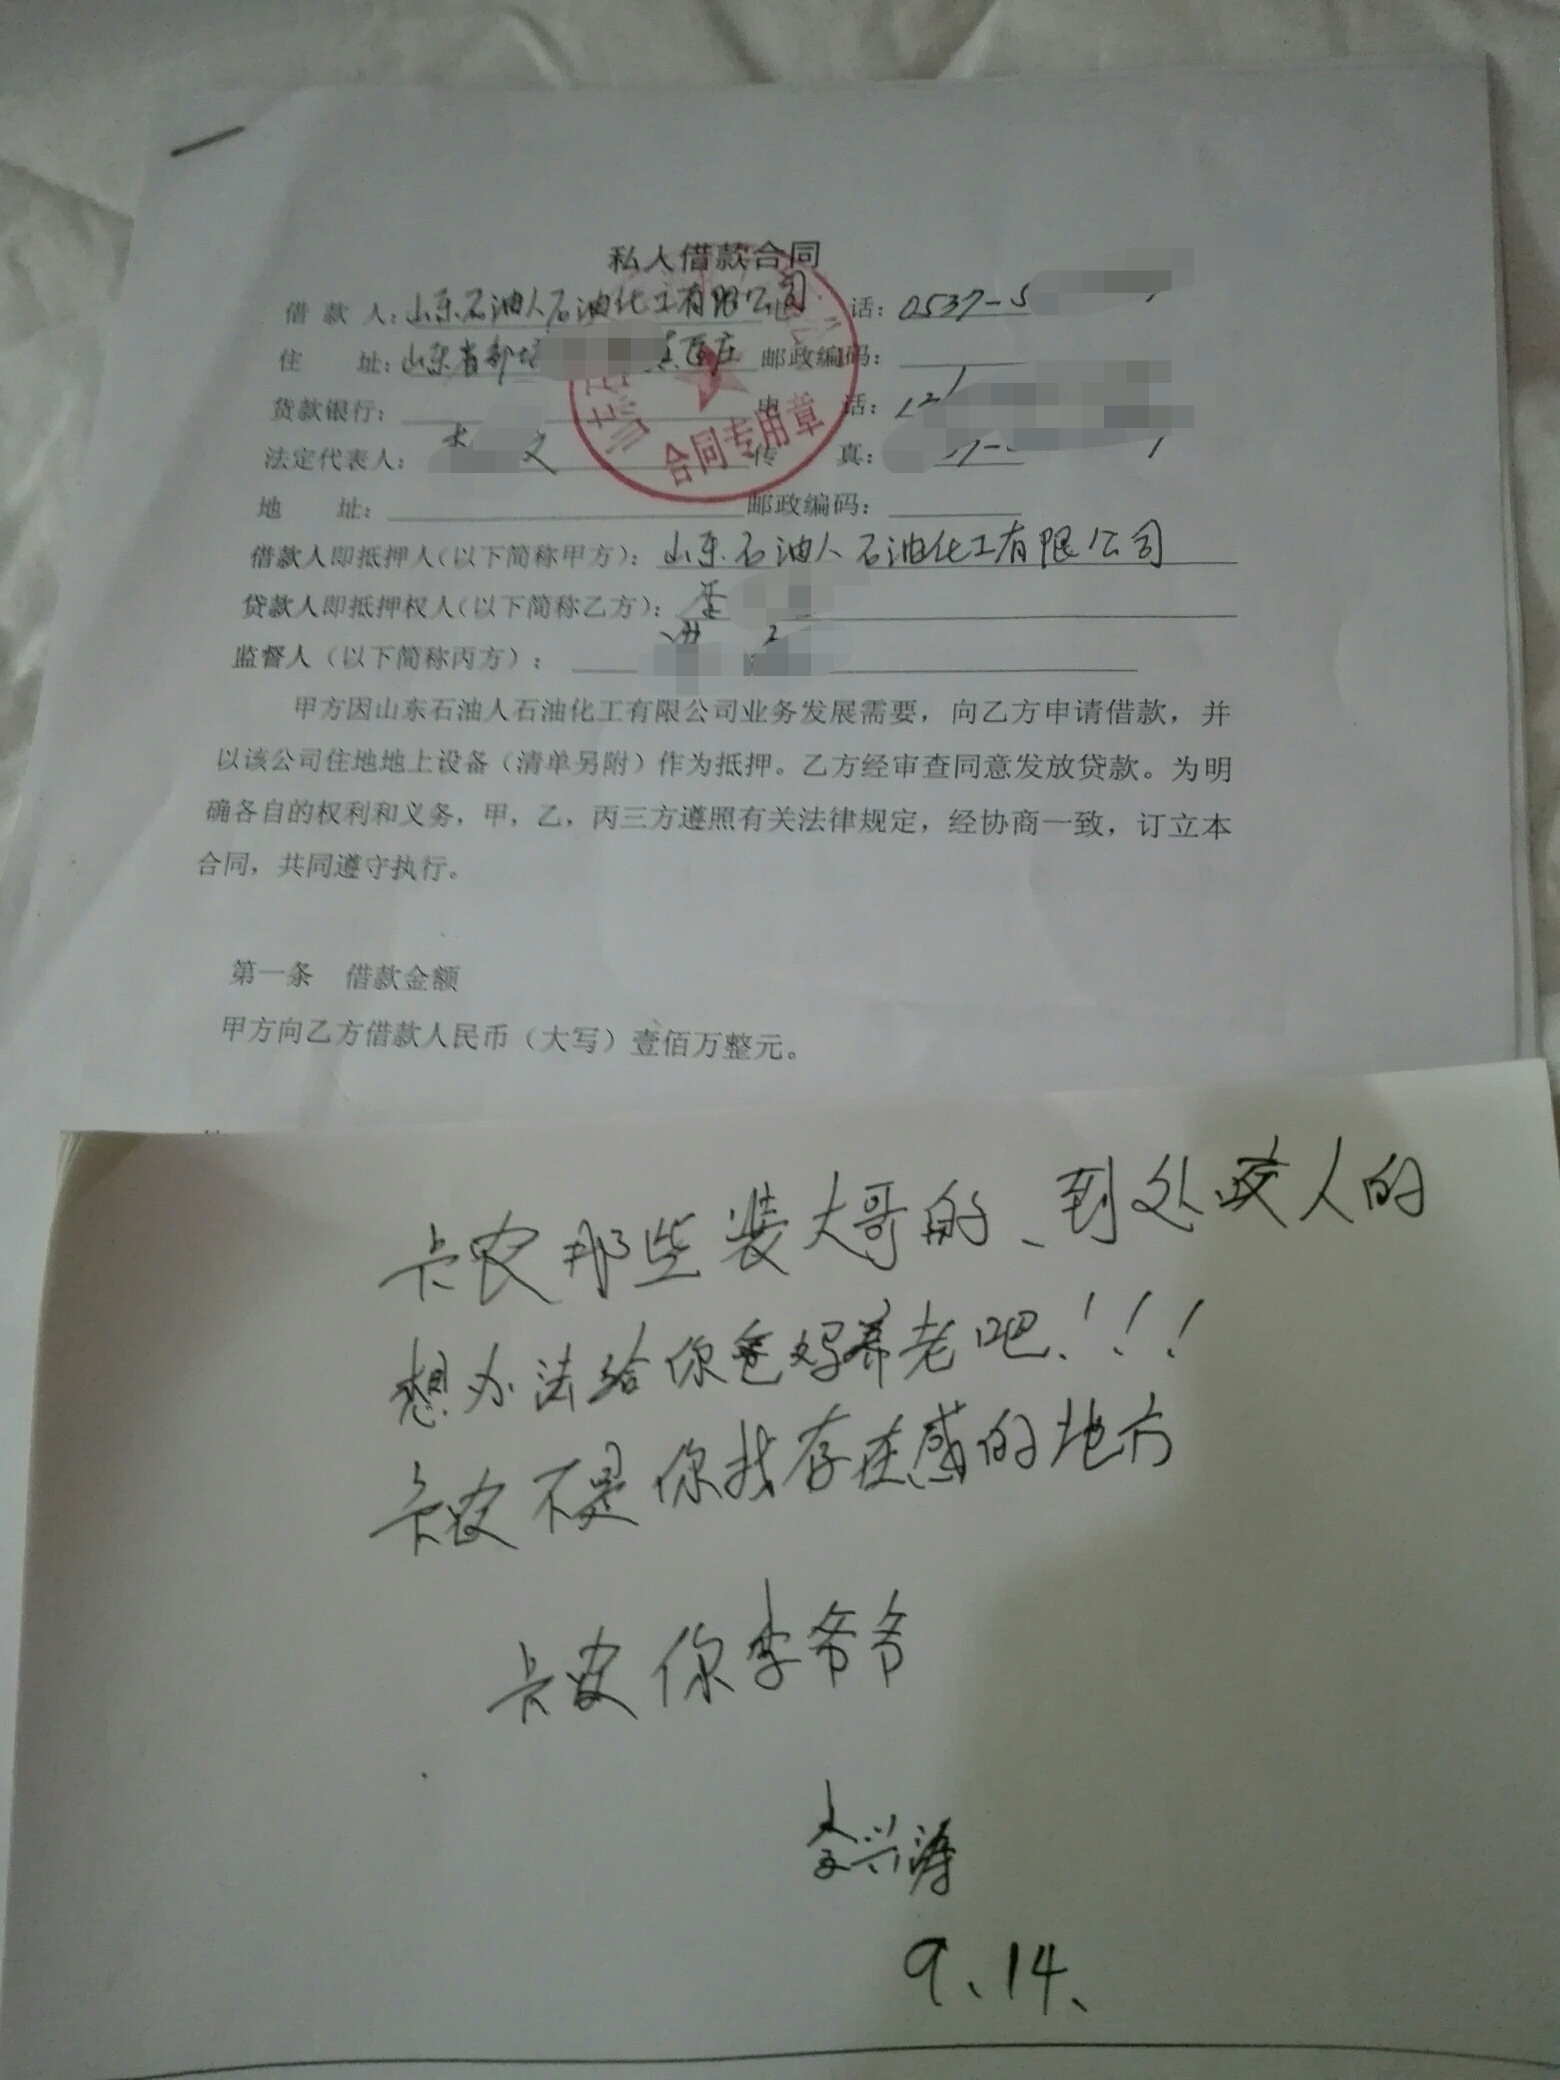 私人借款合同
借款人：山东石油人石油化工有限公司 话：0537-5
住 址：山东省邹 庄 邮政编码：
贷款银行： 电 话：
法定代表人： 文 传 真：
地 址： 邮政编码：
借款人即抵押人（以下简称甲方）：山东石油人石油化工有限公司
贷款人即抵押权人（以下简称乙方）：
监督人（以下简称丙方）：
甲方因山东石油人石油化工有限公司业务发展需要，向乙方申请借款，并
以该公司住地地上设备（清单另附）作为抵押。乙方经审查同意发放贷款。为明
确各自的权利和义务，甲，乙，丙三方遵照有关法律规定，经协商一致，订立本
合同，共同遵守执行。
合同专用章
第一条 借款金额
甲方向乙方借款人民币（大写）壹佰万整元。
卡农那些装大哥的、到处咬人的
想办法给你爸妈养老吧！！！
卡农不是你找存在感的地方
卡农你李爷爷
李兴涛
9.14.